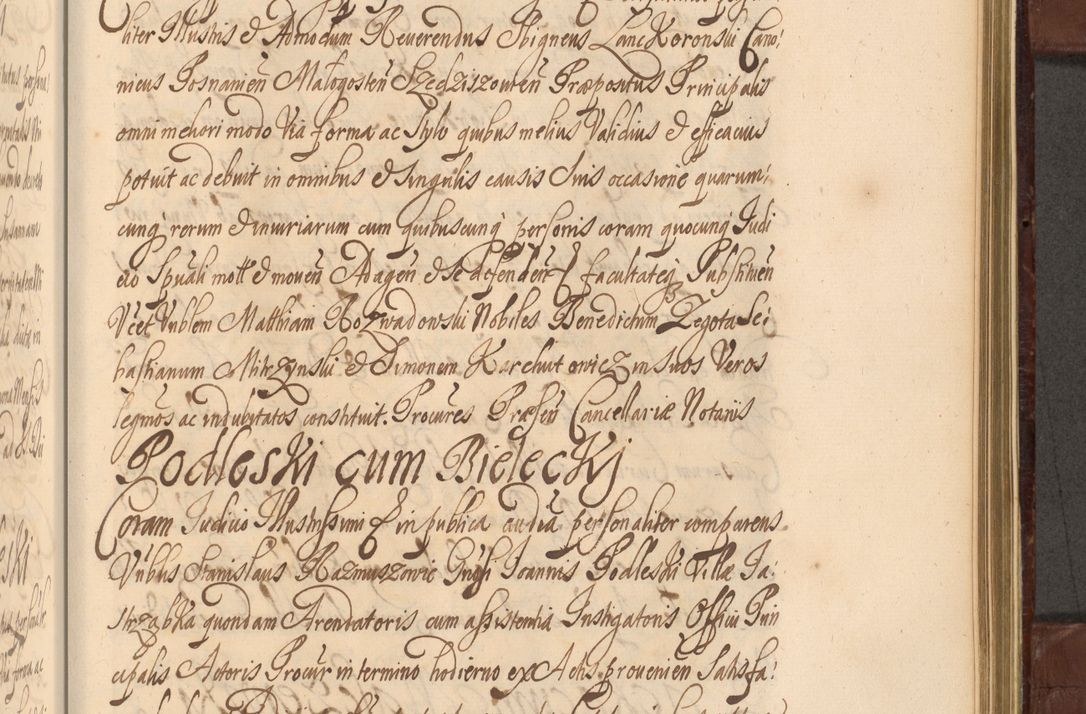 liter Illustris et Admodum Reverendus Sbigneus Lanckoronski Cano:
nicus Posnanien Małogosten Szedziszowien Præpositus Principalis
omni meliori modo Via forma ac Stylo quibus melius Validius et efficacius
potuit ac debuit in omnibus et Singulis causis Suis occasione quarum:
cunq rerum et iniuriarum cum quibuscunq personis coram quocunq Iudi
cio Spuali mott et moven Ad agen et se defenden facultateq Substituen
Vcet Vnblem Matthiam Rozwadowski Nobiles Benedictum Zegota Se:
bastianum Mitrzynski et Simonem Karchutowicz in suos Veros
legmos ac indubitatos constituit. Procures Præsen Cancellariæ Notarijs
Podleski cum Bieleckj
Coram Iudicio Illustrissimi in publica audia personaliter comparens
Vnblis Stanislaus Razmuszowic Gnosi Ioannis Podleski Villæ Ja:
strząbka quondam Arendatoris cum assistentia Instigatoris Officii Prin
cipalis Actoris Procur in termino hodierno ex Actis provenien Satisfa: